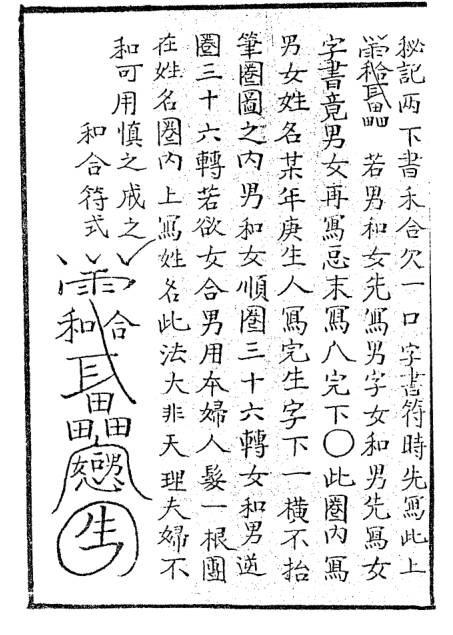 秘記两下書禾合欠一口字書符時先寫此上
若男和女先寫男字女和男先寫女
字書竟男女再寫忌末寫八完下〇此圈内寫
男女姓名某年庚生人寫完生字下一橫不抬
筆圈圖之内男和女順圈三十六轉女和男逆
圈三十六轉若欲女合男用本婦人髮一根團
在姓名圈内上寫姓名此法大非天理夫婦不
和可用慎之戒之
和合符式
和合
田田田
生